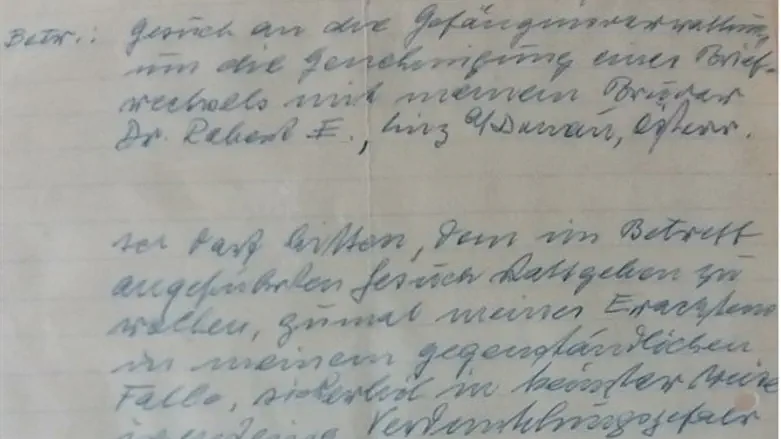 Betr.: Gesuch an die Gefängnisverwaltung,
um die Genehmigung eines Brief-
wechsels mit meinem Bruder
Dr. Robert E., Linz a/Donau, Österr.
Ich darf bitten, dem im Betreff
angeführten Gesuch stattgeben zu
wollen, zumal meines Erachtens
in meinem gegenständlichen
Falle, sicherlich in keinster Weise
irgendeine Verdunklungsgefahr